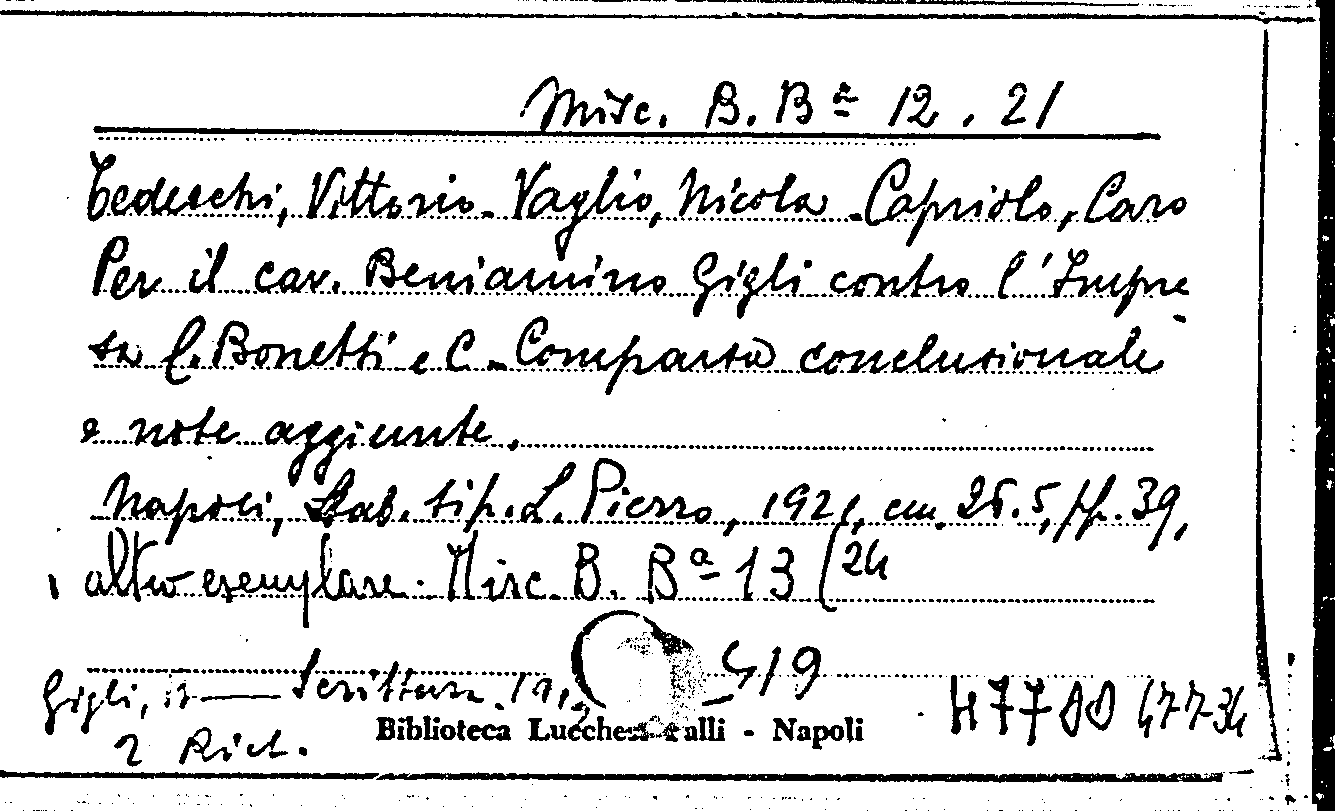 Misc. B. Bª 12. 21
Tedeschi, Vittorio - Vaglio, Nicola - Capriolo, Caro
Per il cav. Beniamino Gigli contro l'Impre
sa C. Bonetti e C. - Comparsa conclusionale
e note aggiunte.
Napoli, Stab. tip. L. Pierro, 1921, cm. 26.5, pp. 39,
altro esemplare. Misc. B. Bª 13 (24
Gigli, B — Scrittura 419
2 Rich.
Biblioteca Lucchesi Palli - Napoli
47700 47734